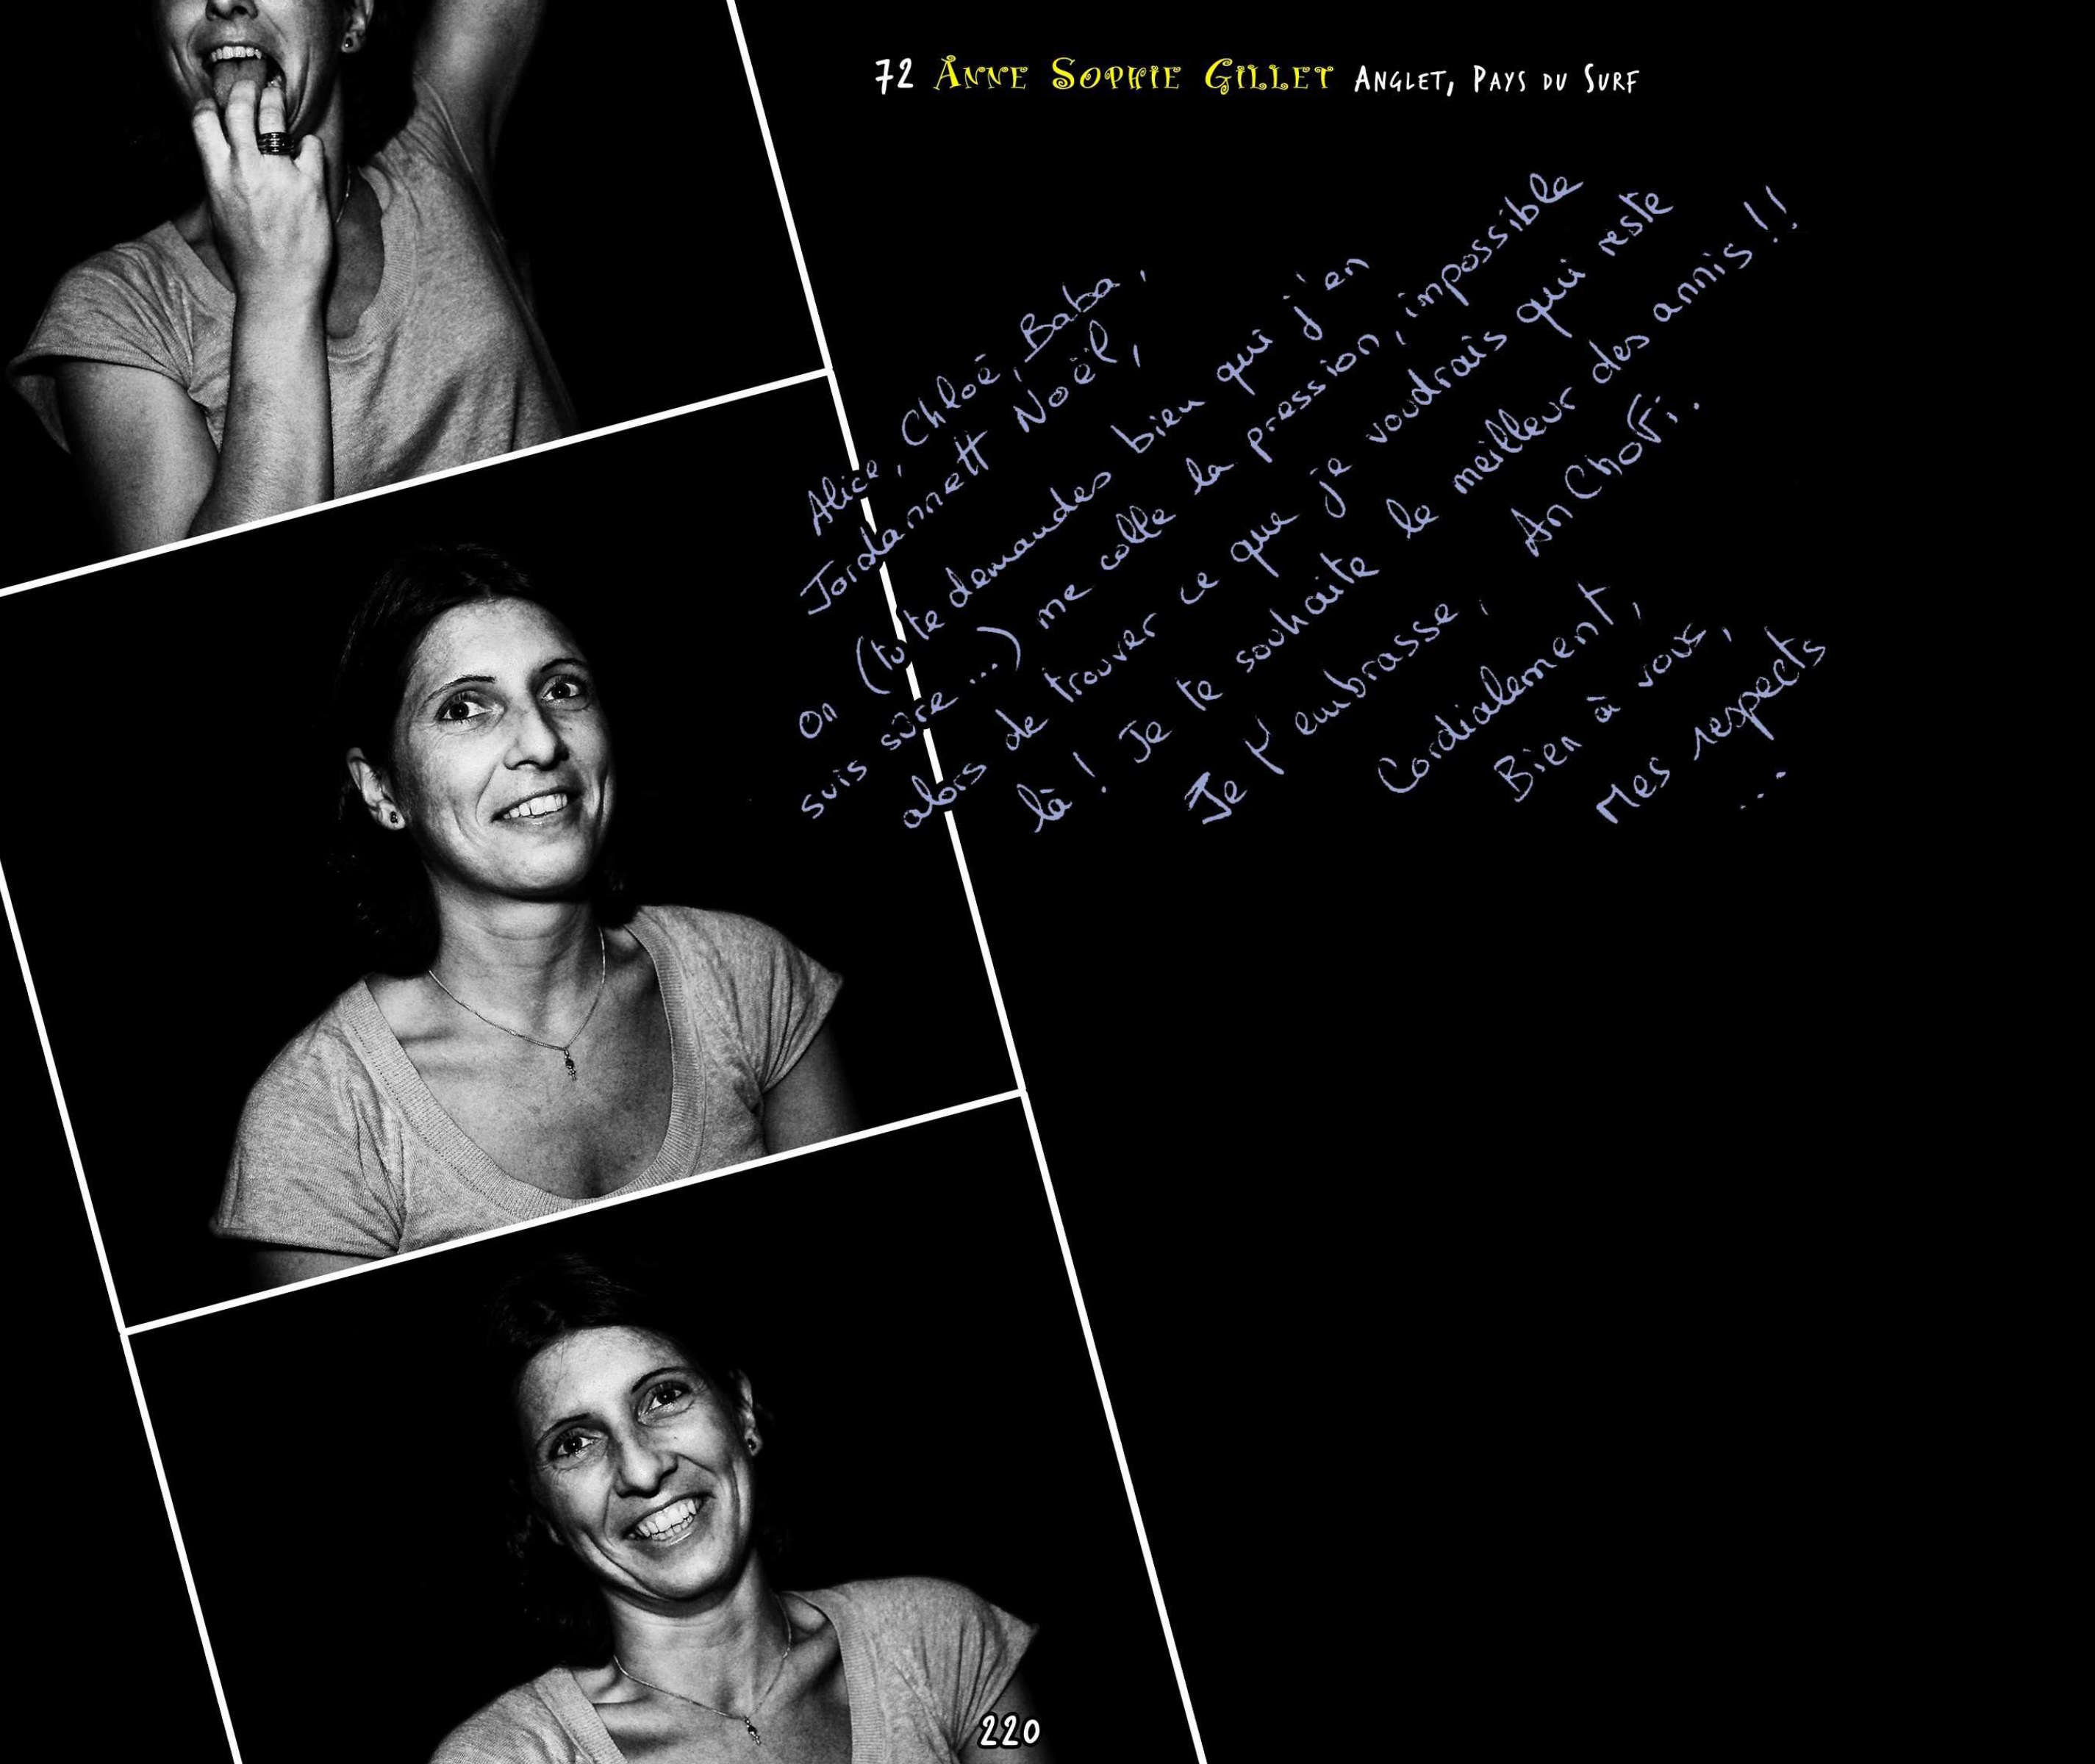 72 Anne Sophie Gillet Anglet, Pays du Surf
Alice, Chloé, Baba,
Jordannett Noël,
On (tu te demandes bien qui j'en
suis sûre ...) me colle la pression, impossible
alors de trouver ce que je voudrais qui reste
là ! Je te souhaite le meilleur des annis !!
Je t'embrasse, An Chovi.
Cordialement,
Bien à vous,
Mes respects
...
220